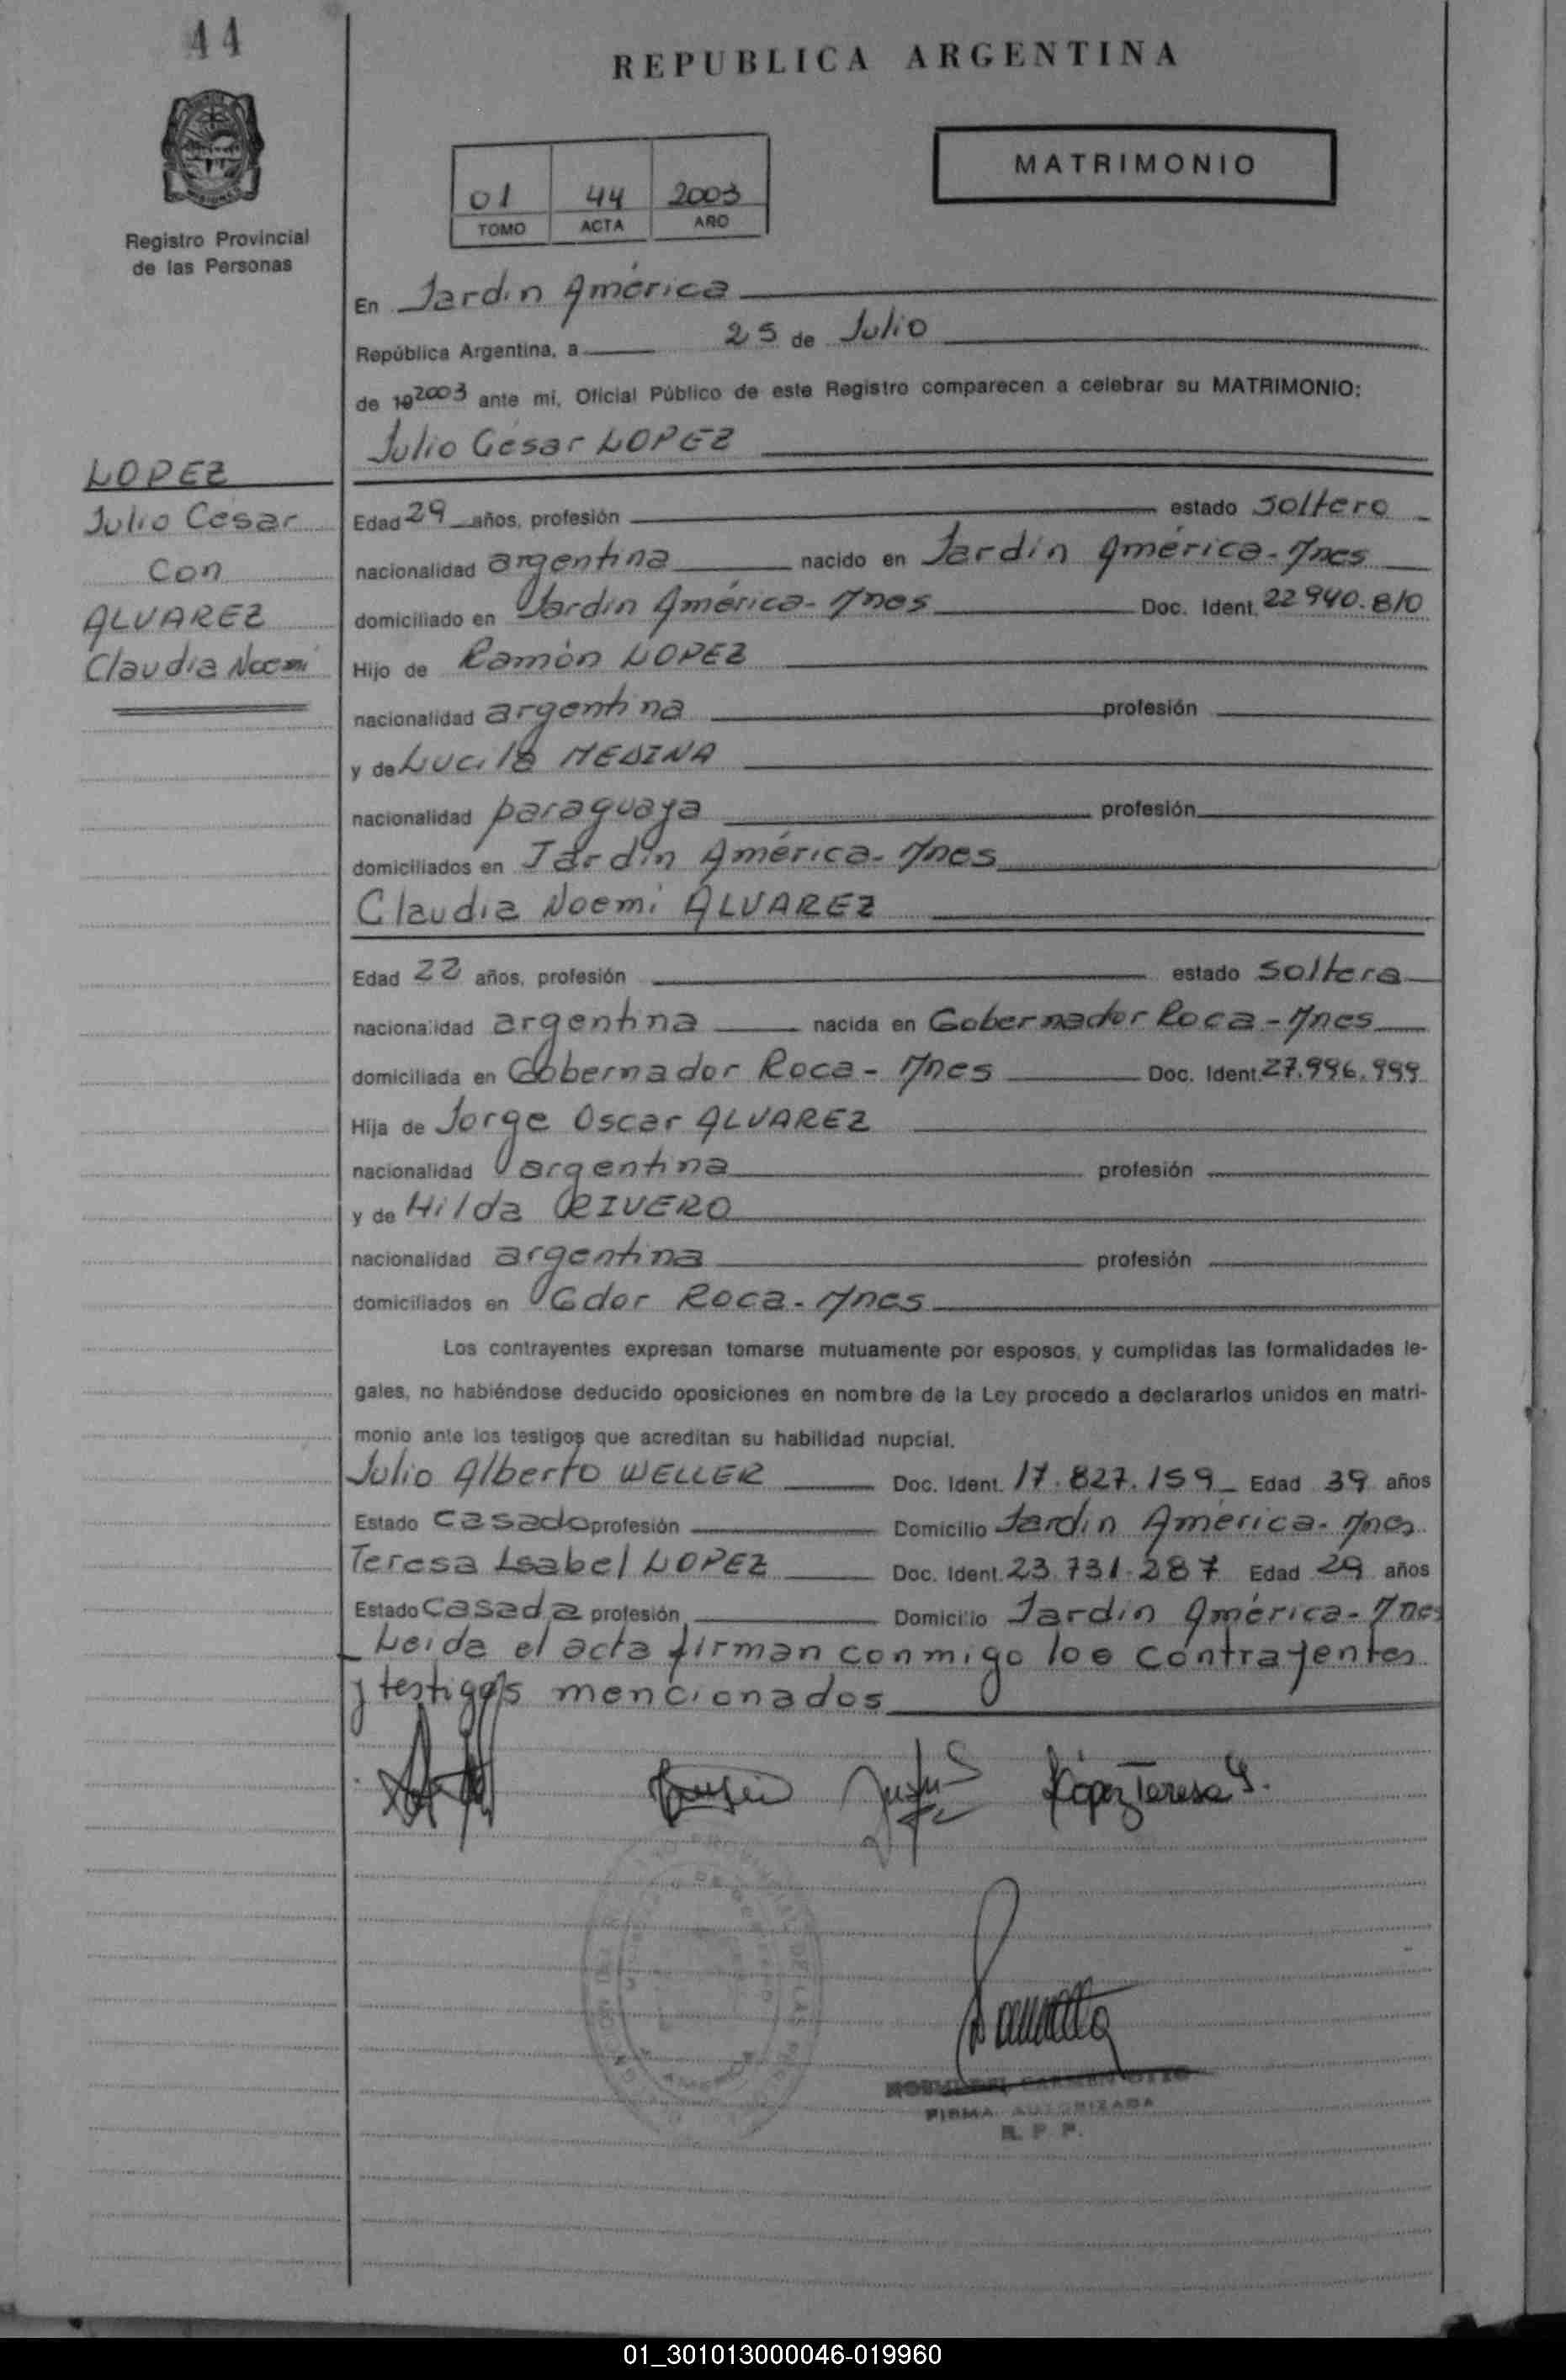 44
REPUBLICA ARGENTINA
MATRIMONIO
01 44 2003
TOMO ACTA AÑO
Registro Provincial
de las Personas
En Jardin América
República Argentina, a 25 de Julio
de 192003 ante mi, Oficial Público de este Registro comparecen a celebrar su MATRIMONIO:
Julio César LOPEZ
LOPEZ
Julio César
Con
ALVAREZ
Claudia Noemi
Edad 29 años, profesión estado soltero
nacionalidad argentina nacido en Jardín América-Mnes
domiciliado en Jardín América-Mnes Doc. Ident. 22940.810
Hijo de Ramón LOPEZ
nacionalidad argentina profesión
y de Lucila MEDINA
nacionalidad paraguaya profesión
domiciliados en Jardín América-Mnes
Claudia Noemi ALVAREZ
Edad 22 años, profesión estado soltera
nacionalidad argentina nacida en Gobernador Roca-Mnes
domiciliada en Gobernador Roca-Mnes Doc. Ident. 27.996.999
Hija de Jorge Oscar ALVAREZ
nacionalidad argentina profesión
y de Hilda RIVERO
nacionalidad argentina profesión
domiciliados en Gdor Roca-Mnes
Los contrayentes expresan tomarse mutuamente por esposos, y cumplidas las formalidades le-
gales, no habiéndose deducido oposiciones en nombre de la Ley procedo a declararlos unidos en matri-
monio ante los testigos que acreditan su habilidad nupcial.
Julio Alberto WELLER Doc. Ident. 17.827.159 Edad 39 años
Estado casado profesión Domicilio Jardín América-Mnes
Teresa Isabel LOPEZ Doc. Ident. 23.731.287 Edad 29 años
Estado casada profesión Domicilio Jardín América-Mnes
Leida el acta firman conmigo los contrayentes
y testigos mencionados
López Teresa I.
FIRMA AUTORIZADA
R. P. P.
01_301013000046-019960